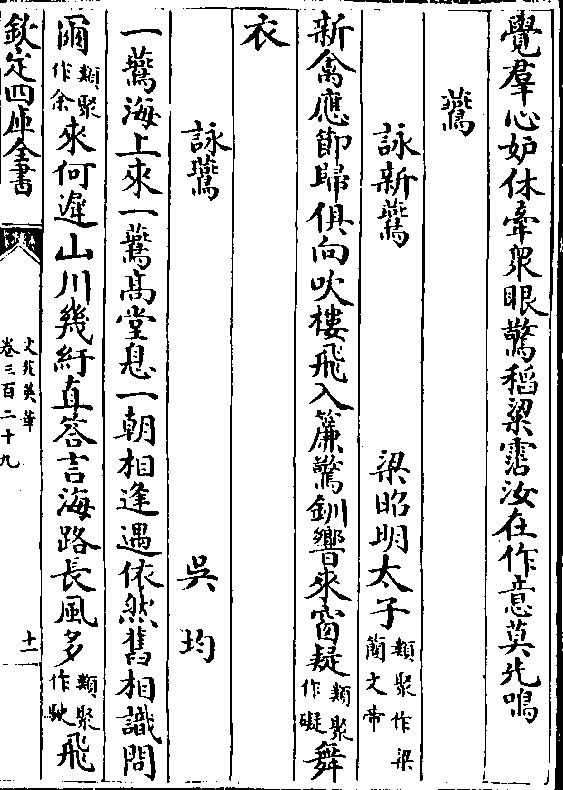 覺羣心妒休牽衆眼驚稻粱霑汝在作意莫先鳴
鷰
詠新鷰 梁昭明太子類聚作梁簡文帝
新禽應節歸俱向吹樓飛入簾驚釧響來窗疑類聚作礙舞
衣
詠鷰 吳均
一鷰海上來一鷰高堂息一朝相逢遇依然舊相識問
爾類聚作余來何遲山川幾紆直答言海路長風多類聚作駛飛
欽定四庫全書 文苑英華 卷三百二十九 十一